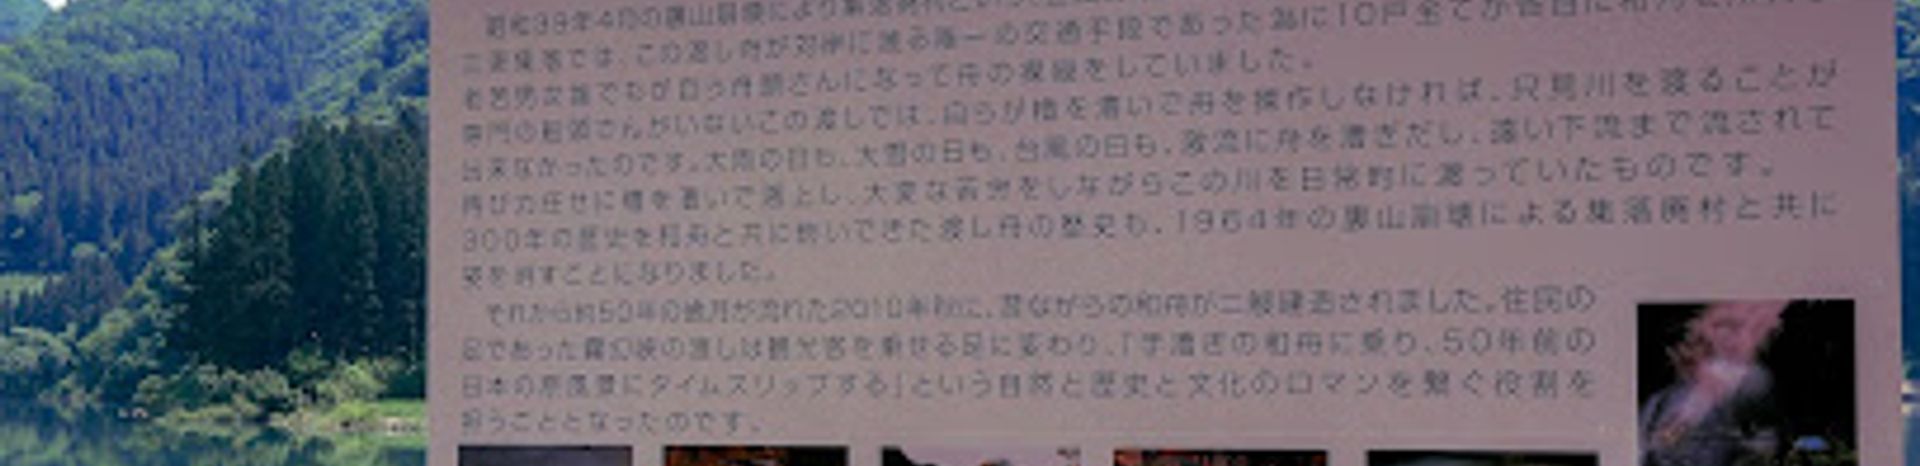 昭和39年4月の裏山崩壊により集落廃村という
三更集落では、この渡し舟が対岸に渡る唯一の交通手段であった為に10戸全てが各自に和舟を
老若男女誰でもが自ら舟頭さんになって舟の操縦をしていました。
専門の船頭さんがいないこの渡しでは、自らが櫓を漕いで舟を操作しなければ、只見川を渡ることが
出来なかったのです。大雨の日も、大雪の日も、台風の日も、激流に舟を漕ぎだし、遠い下流まで流されて
再び力任せに櫓を漕いで遡上し、大変な苦労をしながらこの川を日常的に渡っていたものです。
300年の歴史を和舟と共に紡いできた渡し舟の歴史も、1964年の裏山崩壊による集落廃村と共に
姿を消すことになりました。
それから約50年の歳月が流れた2010年秋に、昔ながらの和舟が二艘建造されました。住民の
足であった霧幻峡の渡しは観光客を乗せる足に変わり、「手漕ぎの和舟に乗り、50年前の
日本の原風景にタイムスリップする」という自然と歴史と文化のロマンを繋ぐ役割を
担うこととなったのです。